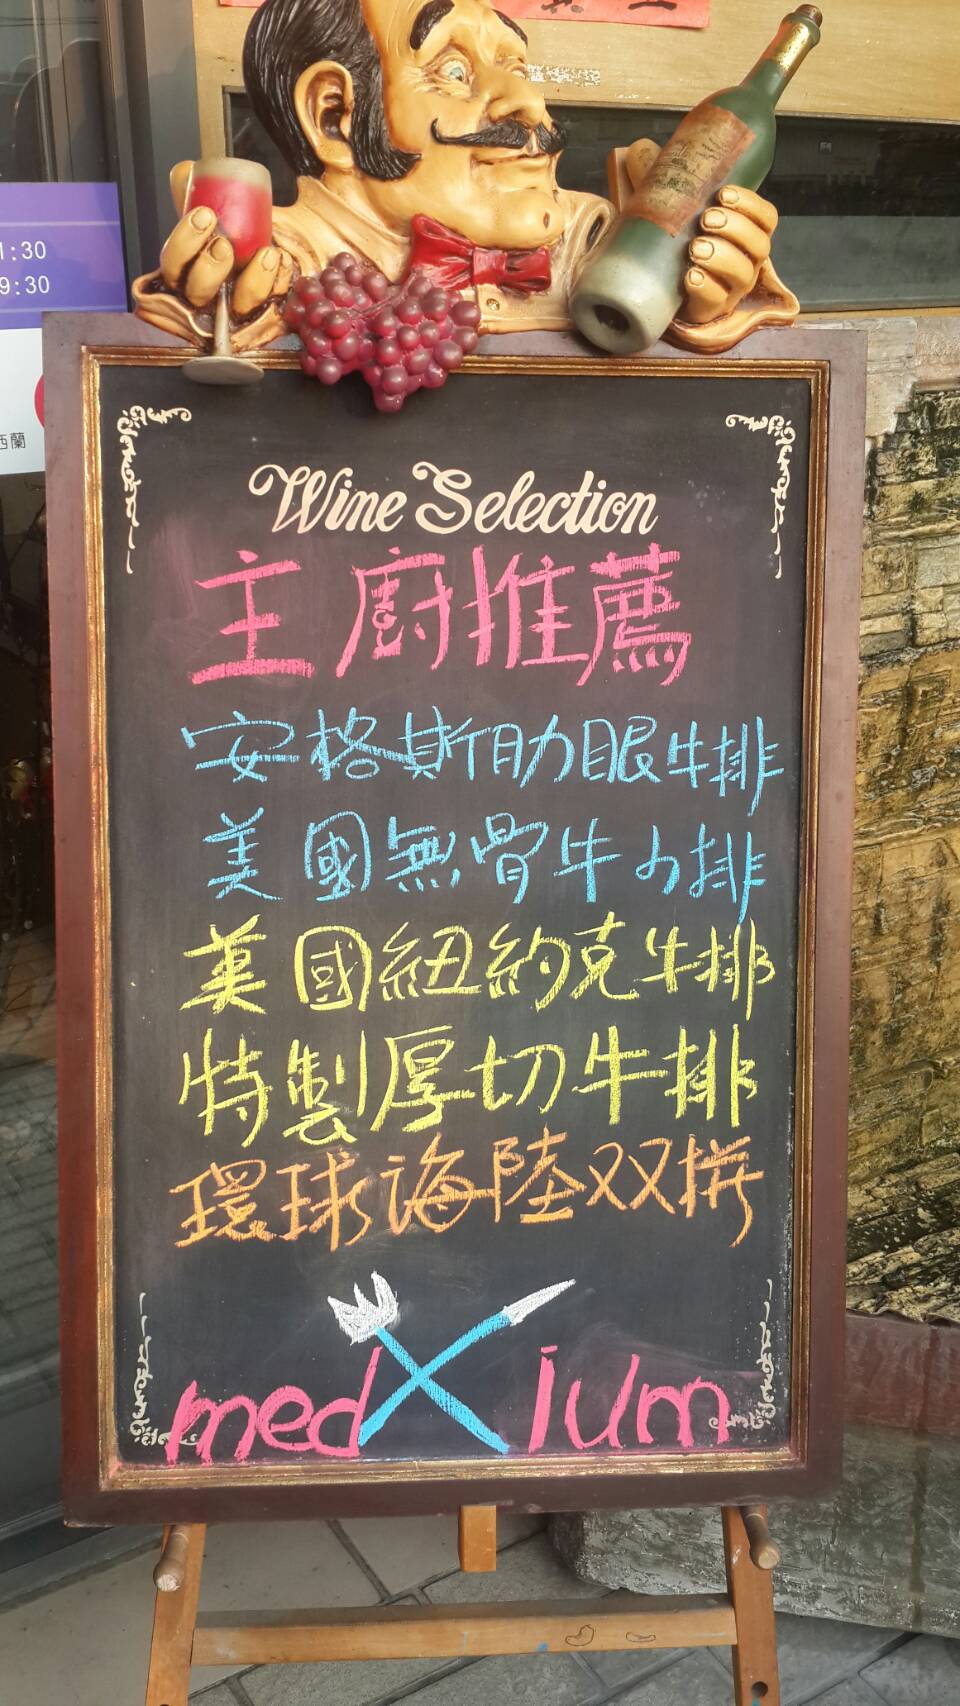 1:30
9:30
西蘭
Wine Selection
主廚推薦
安格斯肋眼牛排
美國無骨牛小排
美國紐約克牛排
特製厚切牛排
環球海陸双拼
medium